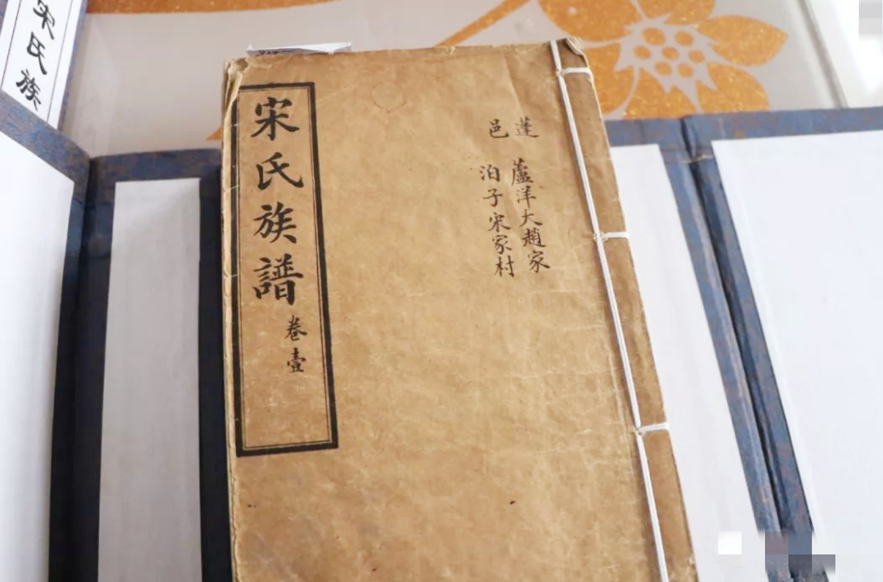 宋氏族譜
卷壹
蓬
邑
蘆洋大趙家
泊子宋家村
宋氏族